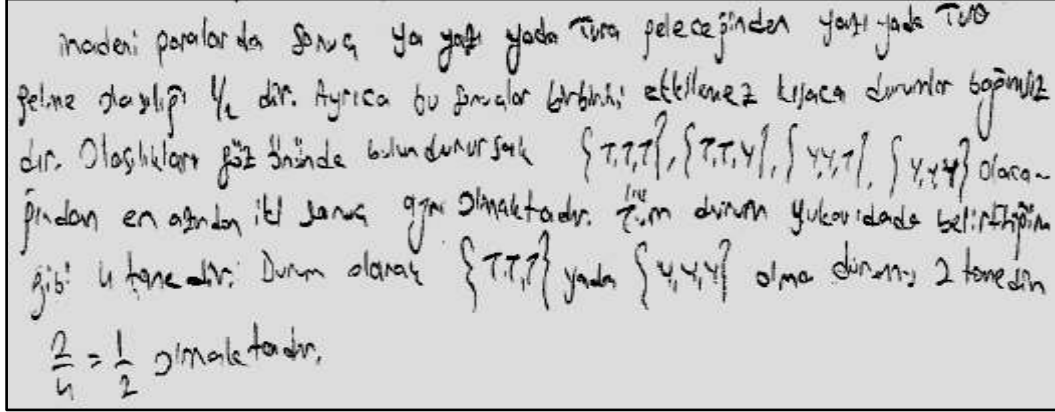 madeni paralarda sonuç ya yazı yada Tura geleceğinden yazı yada Tura
gelme olasılığı 1/2 dir. Ayrıca bu sonuçlar birbirini etkilemez kısaca durumlar bağımsız
dır. Olasılıkları göz önünde bulundurursak {T,T,T}, {T,T,Y}, {Y,Y,T}, {Y,Y,Y} olaca-
ğından en azından iki sonuç aynı olmaktadır. Tüm durum yukarıdada belirttiğim
gibi 4 tanedir. Durum olarak {T,T,T} yada {Y,Y,Y} olma durumu 2 tanedir
2/4 = 1/2 olmaktadır.